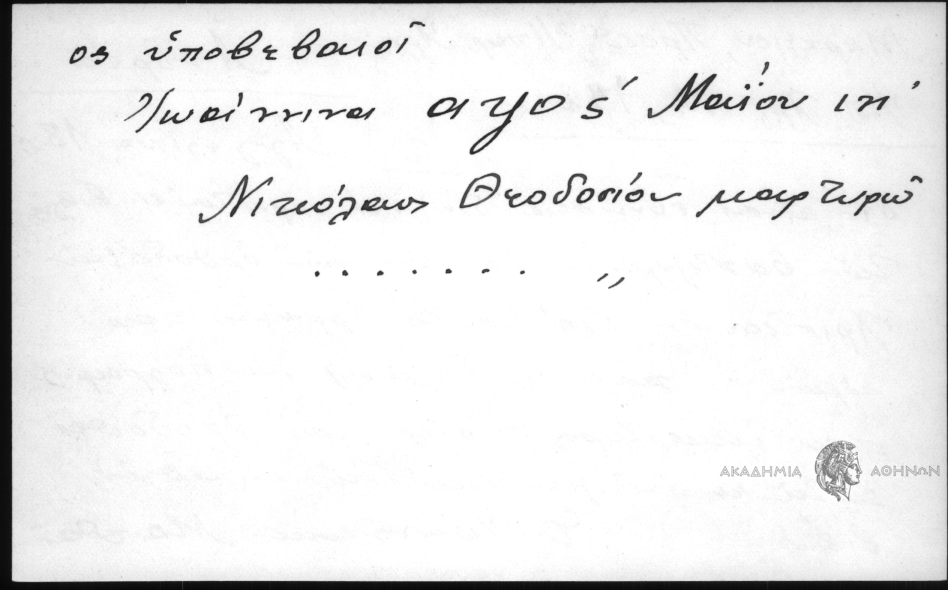 ος ὑποβεβαιοῖ
Ἰωάννινα αψος΄ Μαΐου ιη΄
Νικόλαος Θεοδοσίου μαρτυρῶ
. . . . . . . . ,,
ΑΚΑΔΗΜΙΑ ΑΘΗΝΩΝ